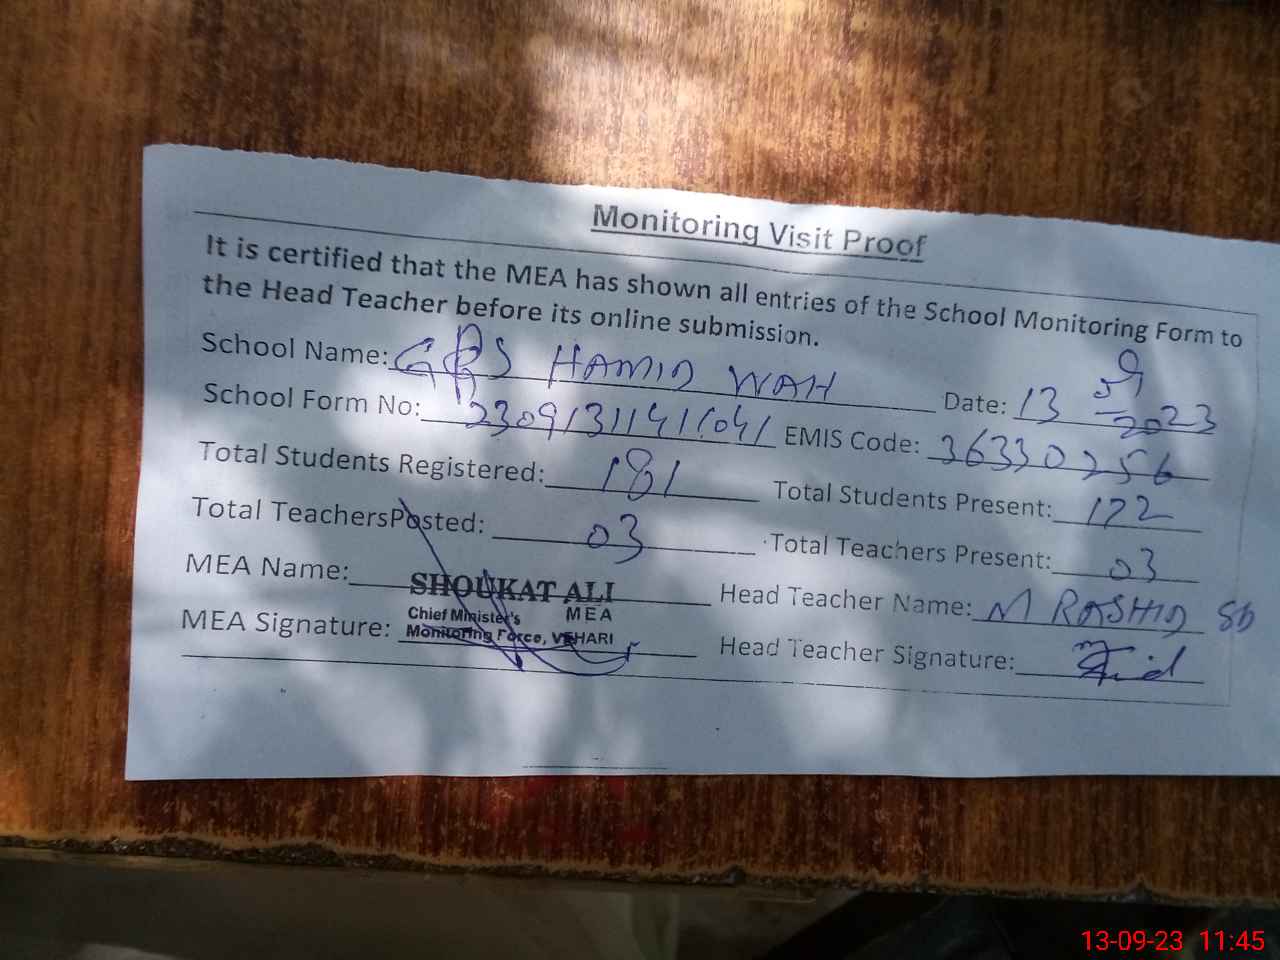 Monitoring Visit Proof
It is certified that the MEA has shown all entries of the School Monitoring Form to
the Head Teacher before its online submission.
School Name: GPS HAMID WAH Date: 13 09 2023
School Form No: 23091311411041 EMIS Code: 36330256
Total Students Registered: 181 Total Students Present: 172
Total TeachersPosted: 03 Total Teachers Present: 03
MEA Name: SHOUKAT ALI Head Teacher Name: M RASHID
Chief Minister's MEA
Monitoring Force, VEHARI
MEA Signature: Head Teacher Signature:
13-09-23 11:45